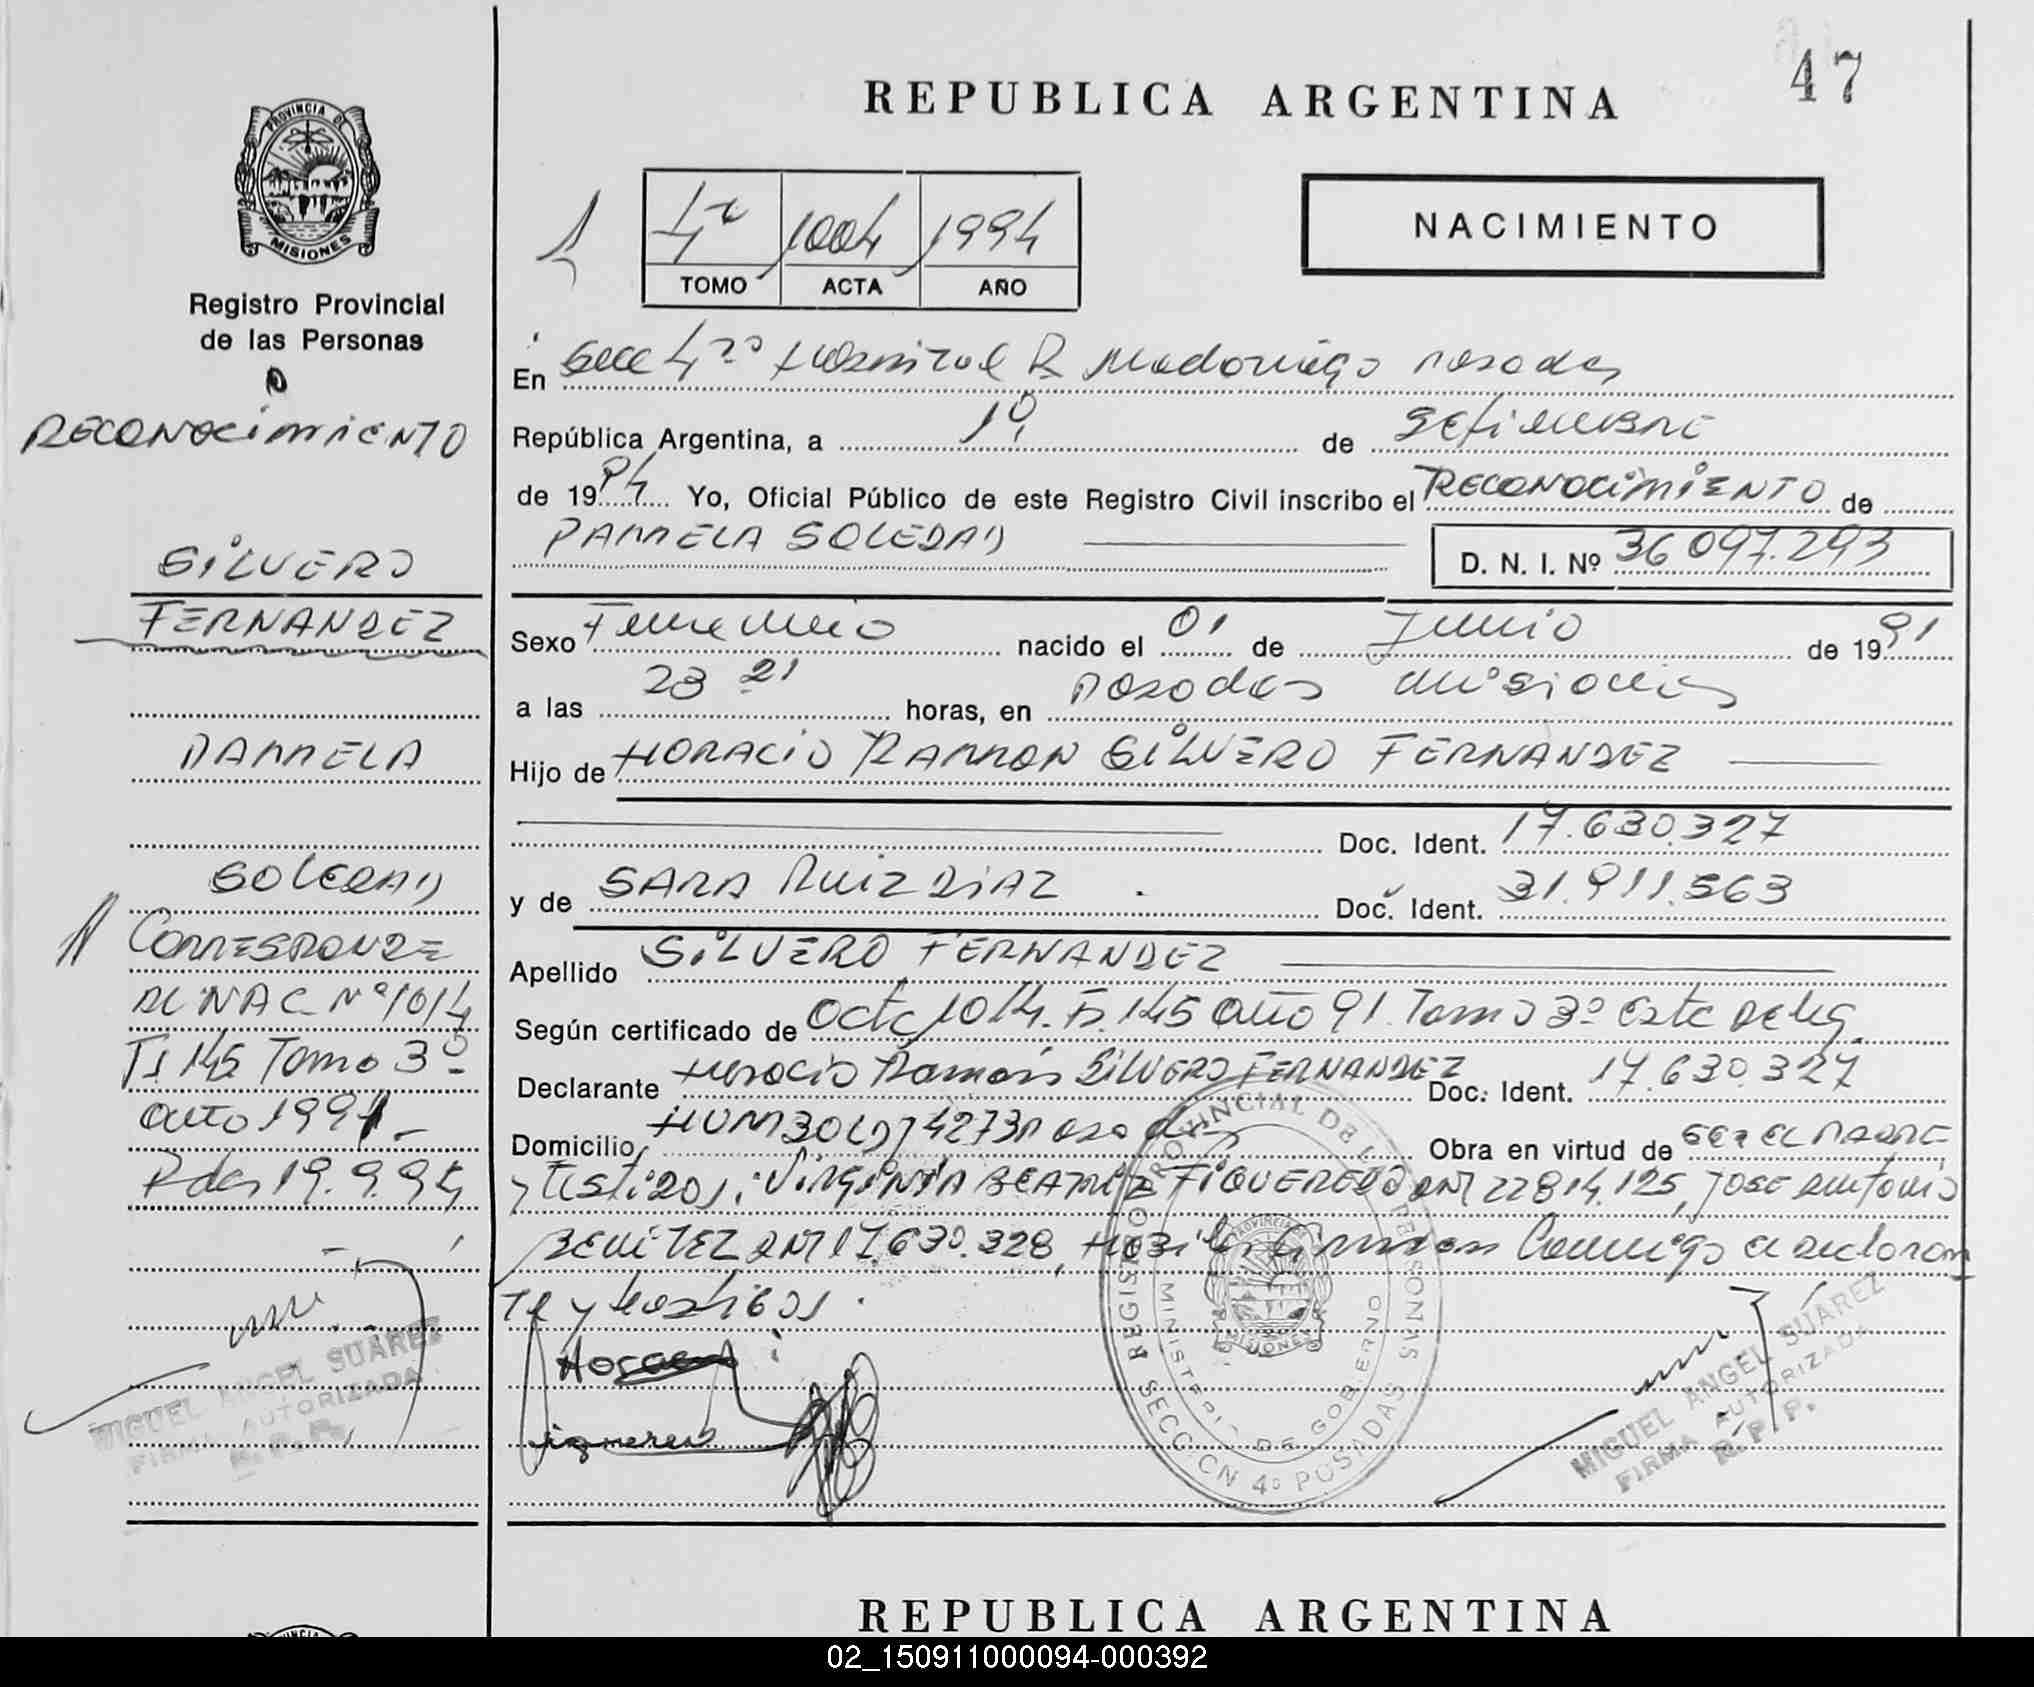 47
REPUBLICA ARGENTINA
PROVINCIA DE
MISIONES
Registro Provincial
de las Personas
RECONOCIMIENTO
SILVERO
FERNANDEZ
PAMELA
SOLEDAD
CORRESPONDE
NAC Nº 1014
Fº 145 Tomo 3º
año 1991
Pdas 19.9.94
MIGUEL ANGEL SUAREZ
FIRMA AUTORIZADA
R.P.P.
4º 1004 1994
TOMO ACTA AÑO
NACIMIENTO
En Secc 4º Hospital R Madariaga Posadas
República Argentina, a 19 de Setiembre
de 1994 Yo, Oficial Público de este Registro Civil inscribo el RECONOCIMIENTO de
PAMELA SOLEDAD D. N. I. Nº 36 097.293
Sexo Femenino nacido el 01 de Junio de 1991
a las 23 21 horas, en Posadas Misiones
Hijo de HORACIO RAMON SILVERO FERNANDEZ
Doc. Ident. 17.630.327
y de SARA RUIZ DIAZ Doc. Ident. 31.911.563
Apellido SILVERO FERNANDEZ
Según certificado de Acta 1014. Fº 145 año 91. Tomo 3º este Deleg.
Declarante Horacio Ramón SILVERO FERNANDEZ Doc. Ident. 17.630.327
Domicilio 4273 Posadas Obra en virtud de ser el PADRE
y testigos: VIRGINIA BEATRIZ FIGUEREDO DNI 22814.125, JOSE Antonio
BENITEZ DNI 17.630.328, Firman Conmigo el declaran
te y testigos.
REGISTRO PROVINCIAL DE LAS PERSONAS
MINISTERIO DE GOBIERNO
SECCION 4º POSADAS
MIGUEL ANGEL SUAREZ
FIRMA AUTORIZADA
R.P.P.
REPUBLICA ARGENTINA
02_150911000094-000392